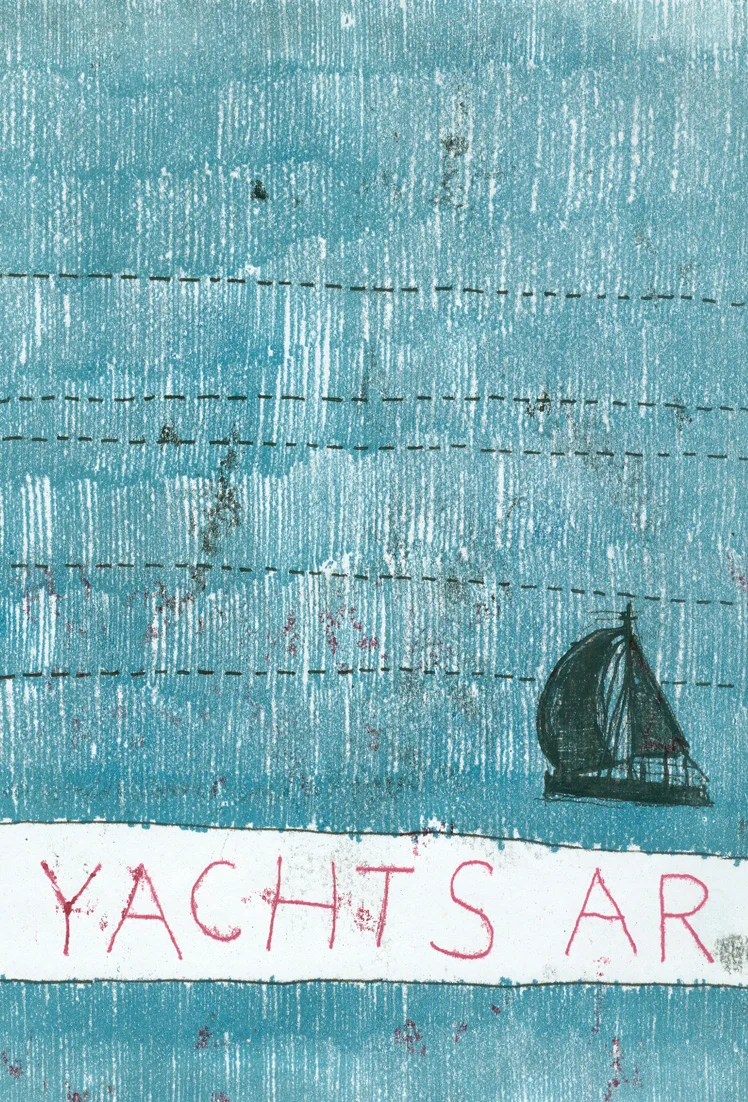 YACHTS AR